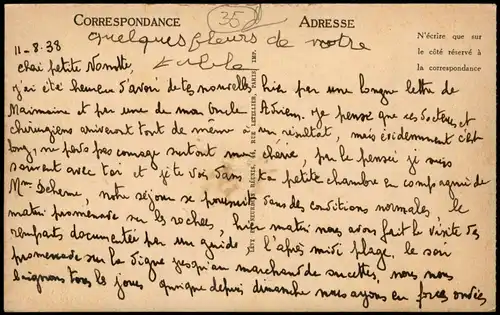 CORRESPONDANCE
35
ADRESSE
N'écrire que sur
le côté réservé à
la correspondance
quelques fleurs de notre
11-8-38
chère petite
j'ai été heureux d'avoir de tes nouvelles hier par une longue lettre de
Marinaine et par une de mon Oncle Adrien. Je pense que docteurs et
chirurgiens arriveront tout de même à un résultat, mais évidemment c'est
long, ne perds pas courage surtout ma chérie, par la pensée je suis
souvent avec toi et je te vois dans ta petite chambre en compagnie de
Mme notre séjour se poursuit dans des conditions normales, le
matin promenade sur les rochers, hier matin nous avons fait la visite des
remparts documentée par un guide l'après midi plage, le soir
promenade sur la digue jusqu'au marchand de sucettes, nous nous
baignons tous les jours quoique depuis dimanche nous ayons eu forces ondées